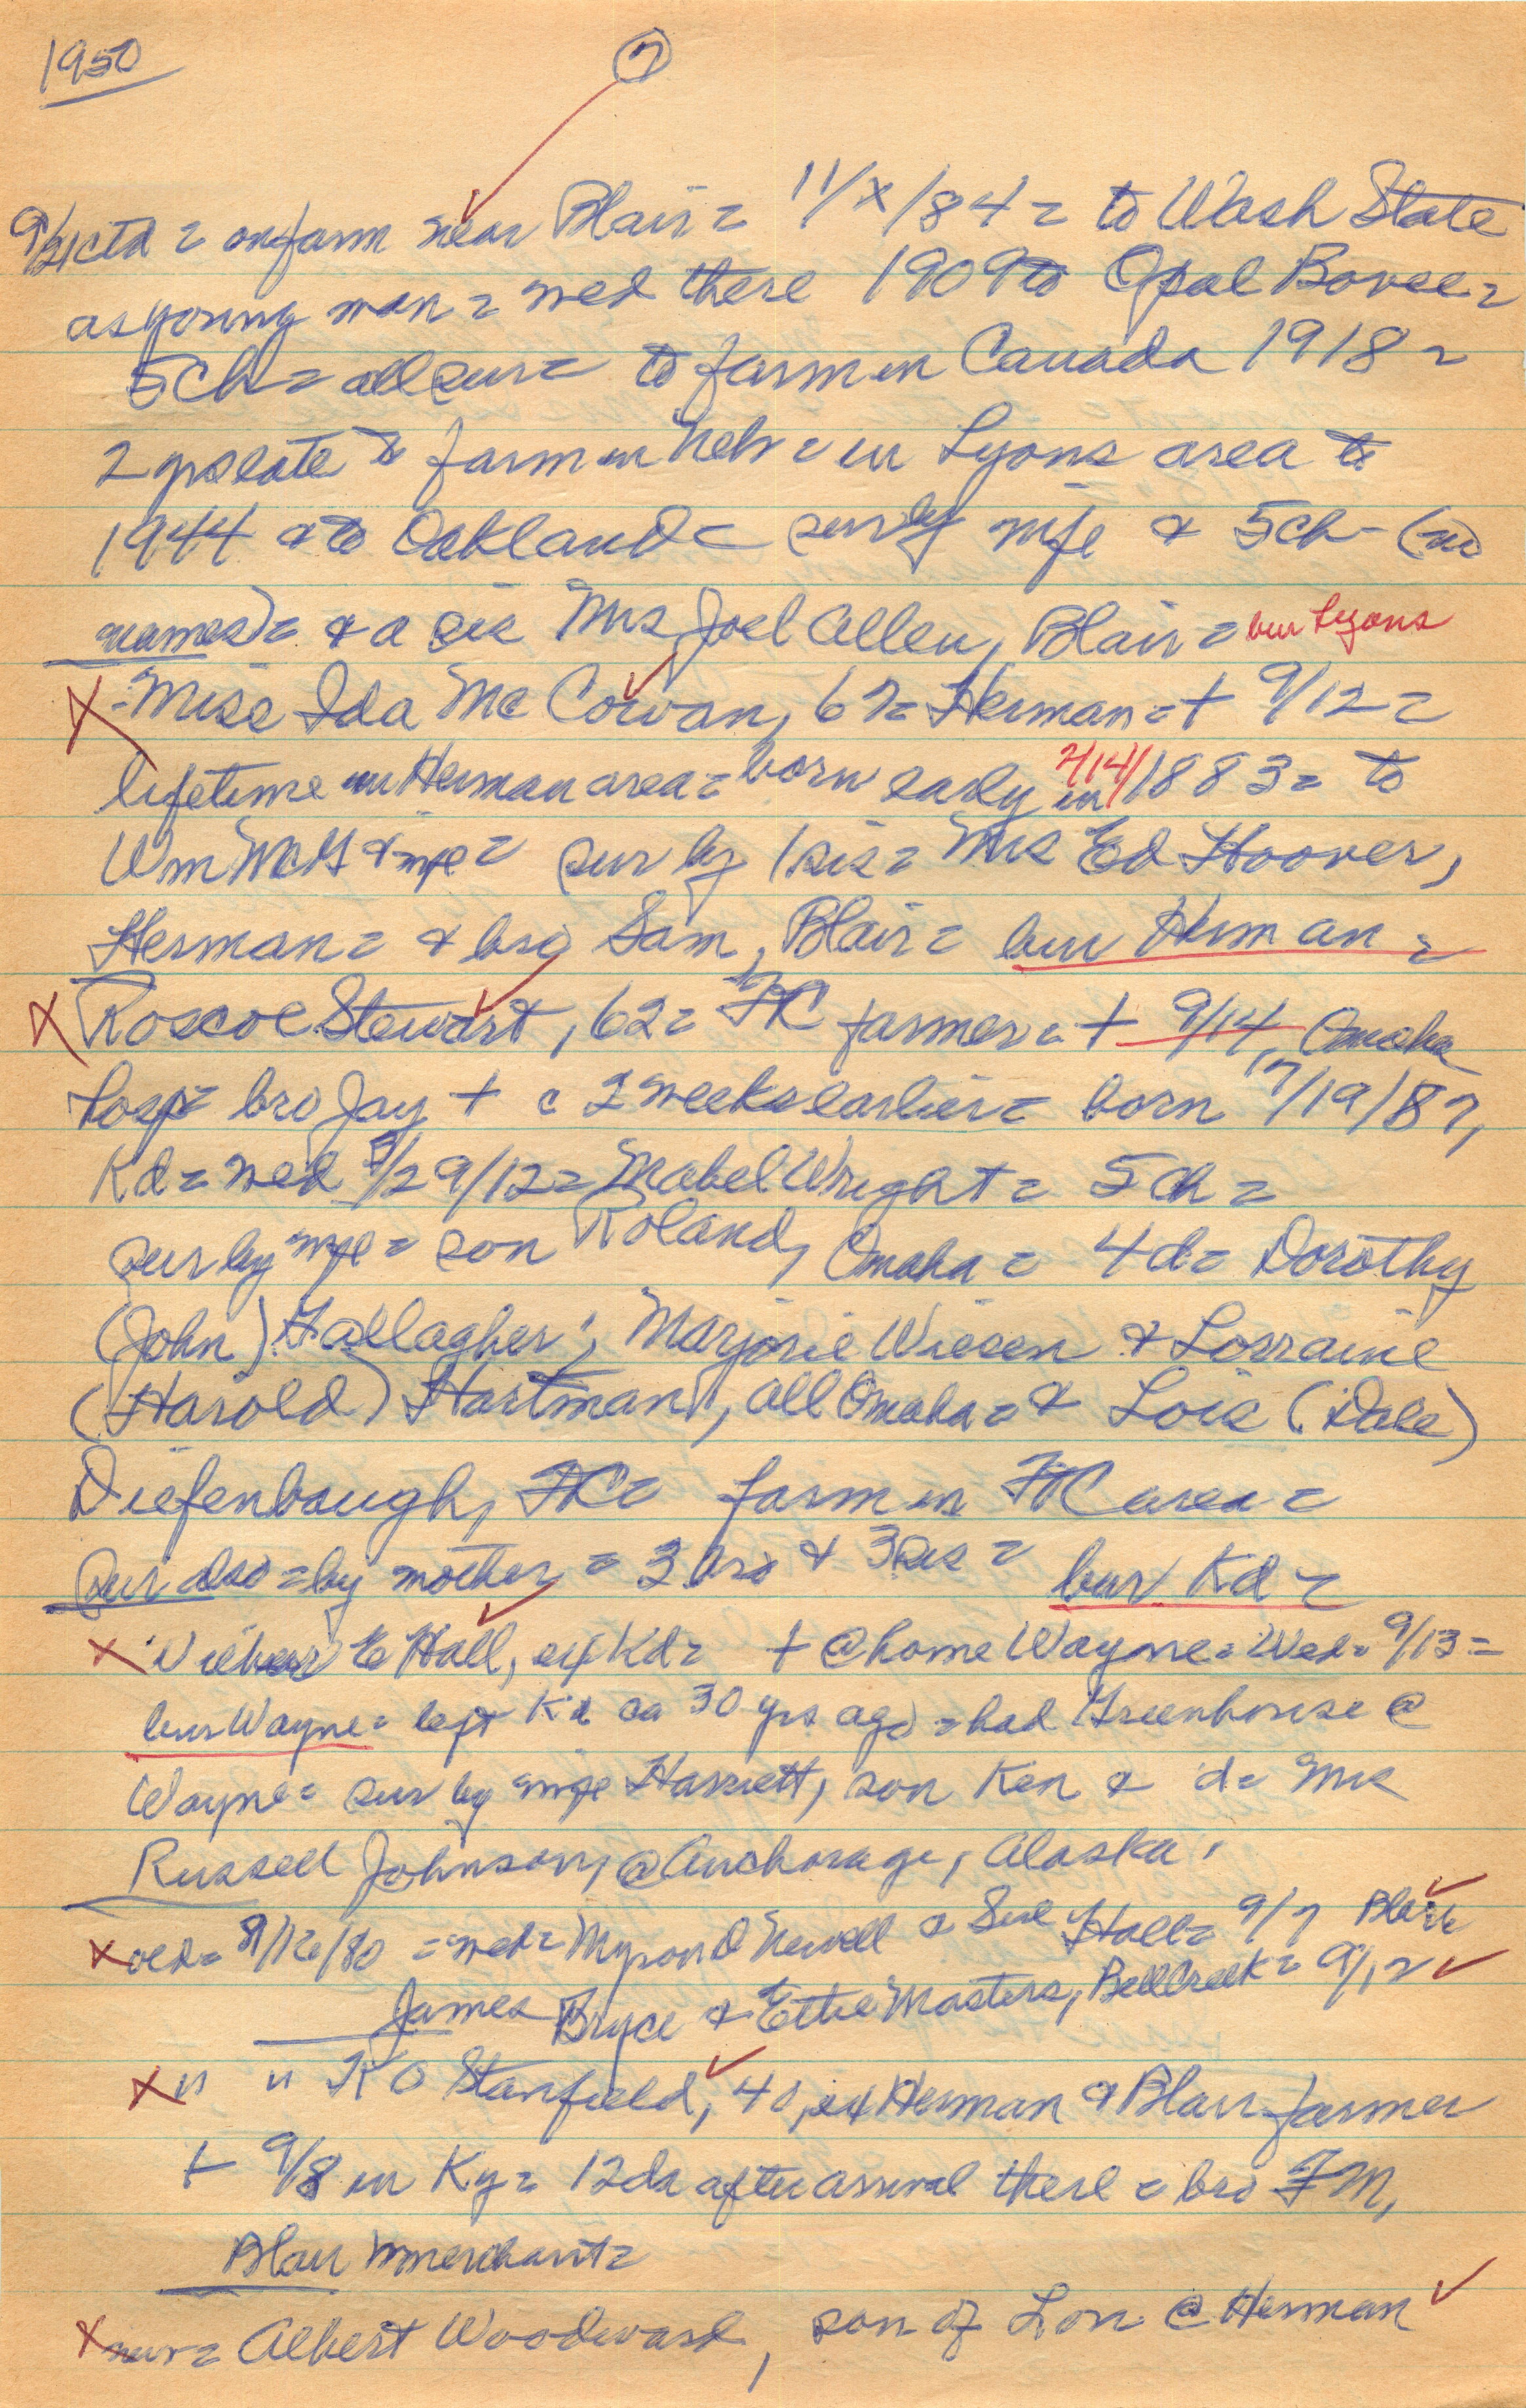 1950
7
9/21 ctd = on farm near Blair = 11/x/84 = to Wash State
as young man = wed there 1909 to Opal Bovee =
5 ch = all sur = to farm in Canada 1918 =
2 yrs late to farm in Neb = in Lyons area to
1944 & to Oakland = sur by wife & 5 ch - (no
names) = & a sis Mrs Joel Allen, Blair = bur Lyons
X Miss Ida Mc Cowan, 67 = Herman = + 9/12 =
lifetime in Herman area = born early in 2/14/1883 = to
Wm & wife = sur by 1 sis = Mrs Ed Hoover,
Herman = & bro Sam, Blair = bur Herman =
X Roscoe Stewart, 62 = FC farmer = + 9/14, Omaha
hosp = bro Jay + c 2 weeks earlier = born 7/19/87,
Kd = wed 8/29/12 = Mabel Wright = 5 ch =
sur by wife = son Roland, Omaha = 4 d = Dorothy
(John) Gallagher, Marjorie Wiesen & Lorraine
(Harold) Hartman, all Omaha = & Lois (Dale)
Diefenbaugh, FC = farm in FC area =
Sur also = by mother = 3 bro & 3 sis = bur Kd =
X Wilbur E Hall, ex Kd = + @ home Wayne = Wed = 9/13 =
bur Wayne = left Kd ca 30 yrs ago = had Greenhouse @
Wayne = sur by wife Harriett, son Ken & d = Mrs
Russell Johnson, @ Anchorage, Alaska.
X old = 9/16/80 = wed = Myron D Newell & Hall = 9/7 Blair
James Bryce & Ettie Masters, Bell Creek = 9/12
X " " K O Stanfield, 40, ex Herman & Blair farmer
+ 9/8 in Ky = 12 da after arrival there = bro F M,
Blair merchant =
X = Albert Woodward, son of Lon @ Herman